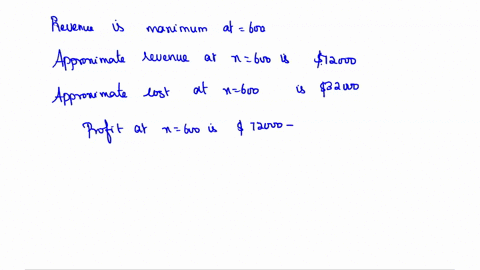 Revenue is maximum at = 600
Approximate revenue at x=600 is $72000
Approximate cost at x=600 is $32000
Profit at x=600 is $ 72000 -